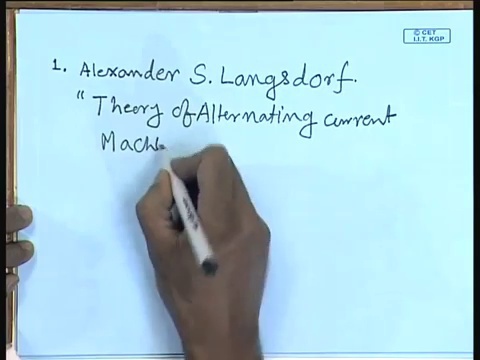 © CET
I.I.T. KGP
1. Alexander S. Langsdorf.
" Theory of Alternating current
Mach